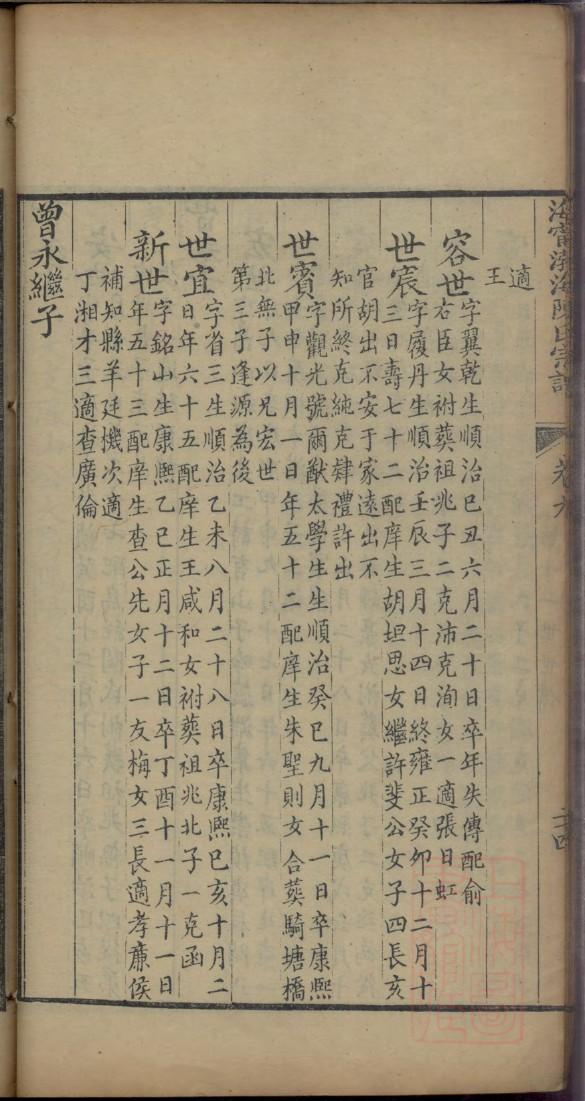 海寧渤海陳氏宗譜
卷九
二十四
適
王
容世字翼乾生順治己丑六月二十日卒年失傳配俞
右臣女祔葬祖兆子二克沛克洵女一適張日虹
世宸字履丹生順治壬辰三月十四日終雍正癸卯十二月十
三日壽七十二配庠生胡坦思女繼許斐公女子四長亥
官胡出不安于家遠出不
知所終克純克肄禮許出
世賓字觀光號爾猷太學生生順治癸巳九月十一日卒康熙
甲申十月一日年五十二配庠生朱聖則女合葬騎塘橋
北無子以兄宏世
第三子逢源為後
世宜字省三生順治乙未八月二十八日卒康熙己亥十月二
日年六十五配庠生王咸和女祔葬祖兆北子一克函
新世字銘山生康熙乙巳正月十二日卒丁酉十一月十一日
年五十三配庠生查公先女子一友梅女三長適孝亷侯
補知縣羊廷機次適
丁湘才三適查廣倫
曾永繼子